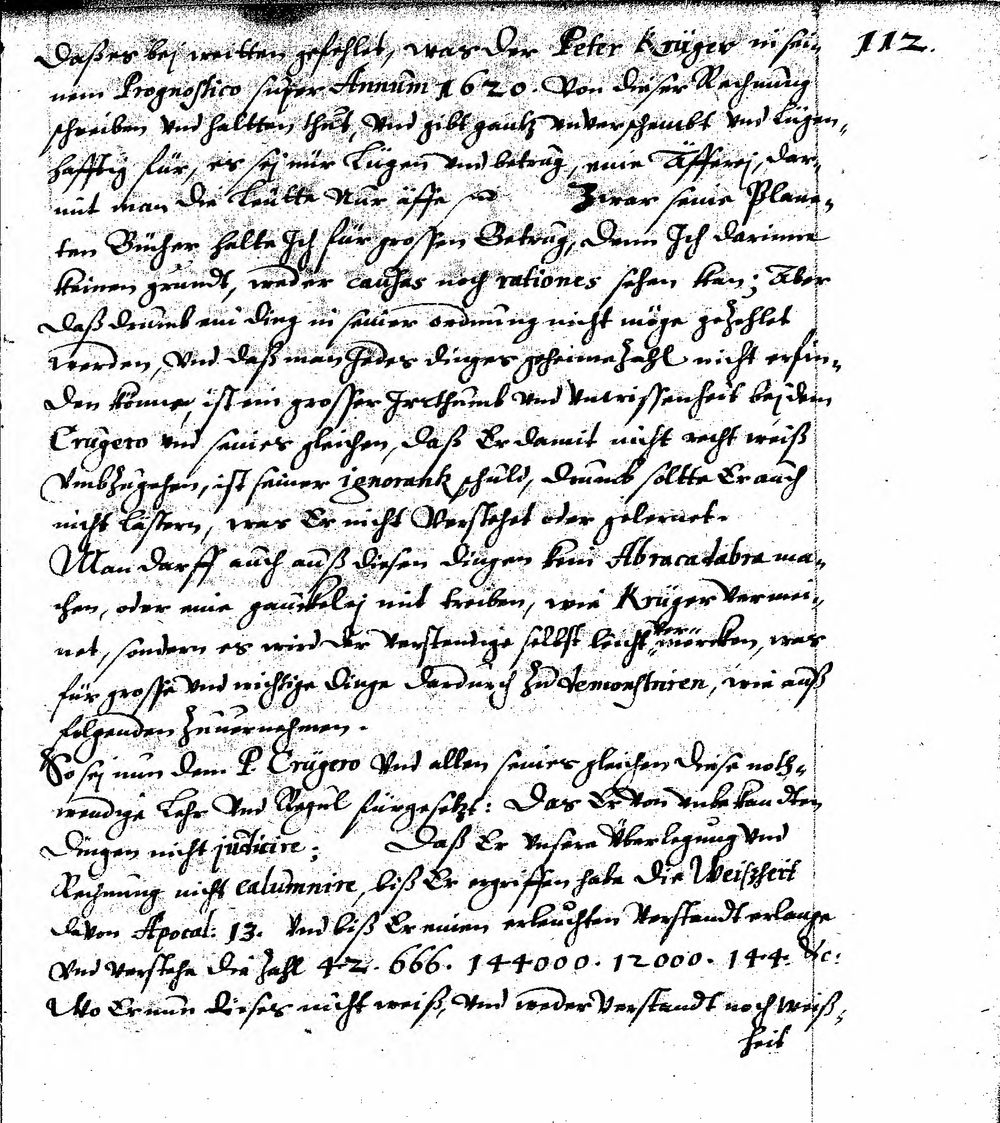 112.
Daß es bej weitten gefehlet, was der Peter Krüger in sei-
nem Prognostico super Annum 1620. Von dieser Rechnung
schreiben vnd haltten thut, Vnd gibt gantz vnverschembt vnd Lügen-
hafftig für, es sej nur Lügen vnd betrug, eine Äfferej, dar-
mit man die Leütte Nur äffe Zwar seine Plane-
ten Bücher halte Ich für grossen Betrug, denn Ich darinne
keinen grundt, weder causas noch rationes sehen kan; Aber
daß drumb ein ding in seiner ordnung nicht möge gezehlet
werden, Vnd daß man Jedes dinges geheime Zahl nicht erfin-
den könne, ist ein grosser Irrthumb vnd Vnwissenheit bej dem
Crügero vnd seines gleichen, daß Er damit nicht recht weiß
Vmbzugehen, ist seiner ignorantz schuld, drumb soltte Er auch
nicht lästern, was Er nicht Verstehet oder gelernet.
Man darff auch auß diesen dingen kein Abracadabra ma-
chen, oder eine gauckelej mit treiben, wie Krüger Vermei-
net, sondern es wird der Verstendige selbst leicht vermercken, was
für grosse vnd wichtige dinge dardurch zu demonstriren, wie auß
folgenden zuuernehmen.
So sej nun dem P. Crügero Vnd allen seines gleichen diese noth-
wendige Lehr Vnd Regul fürgesetzt: Das Er von vnbekandten
dingen nicht judicire; Daß Er Vnsere Überlegung Vnd
Rechnung nicht calumnire, biß Er ergriffen habe die Weißheit
davon Apocal: 13. Vnd biß Er einen erleuchten Verstandt erlange
Vnd verstehe die Zahl 42. 666. 144000. 12000. 144. &c:
Wo Er nun dieses nicht weiß, Vnd weder Verstandt noch Weiß-
heit